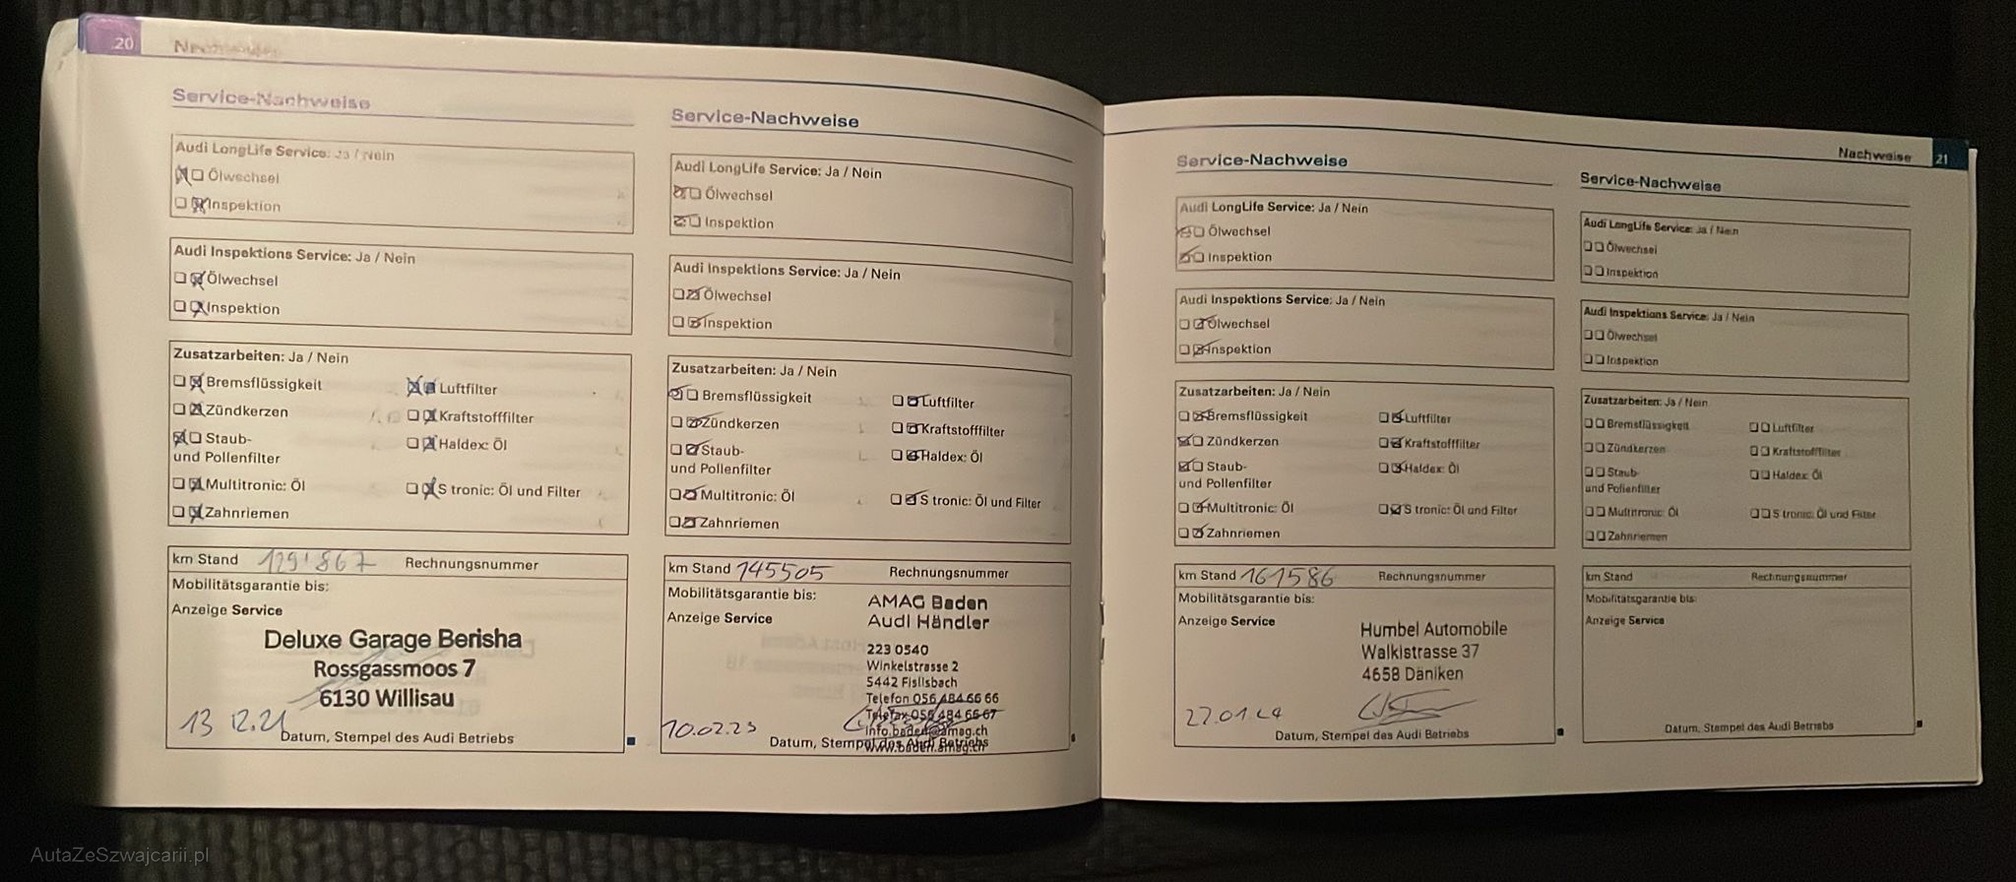 20
Nachweise
Service-Nachweise
Audi LongLife Service: Ja / Nein
Ölwechsel
Inspektion
Audi Inspektions Service: Ja / Nein
Ölwechsel
Inspektion
Zusatzarbeiten: Ja / Nein
Bremsflüssigkeit
Luftfilter
Zündkerzen
Kraftstofffilter
Staub-
und Pollenfilter
Haldex: Öl
Multitronic: Öl
S tronic: Öl und Filter
Zahnriemen
km Stand 129'867 Rechnungsnummer
Mobilitätsgarantie bis:
Anzeige Service
Deluxe Garage Berisha
Rossgassmoos 7
6130 Willisau
13 12.21
Datum, Stempel des Audi Betriebs
Service-Nachweise
Audi LongLife Service: Ja / Nein
Ölwechsel
Inspektion
Audi Inspektions Service: Ja / Nein
Ölwechsel
Inspektion
Zusatzarbeiten: Ja / Nein
Bremsflüssigkeit
Luftfilter
Zündkerzen
Kraftstofffilter
Staub-
und Pollenfilter
Haldex: Öl
Multitronic: Öl
S tronic: Öl und Filter
Zahnriemen
km Stand 145505 Rechnungsnummer
Mobilitätsgarantie bis:
Anzeige Service
AMAG Baden
Audi Händler
223 0540
Winkelstrasse 2
5442 Fislisbach
Telefon 056 484 66 66
Telefax 056 484 66 67
info.baden@amag.ch
www.baden.amag.ch
10.02.23
Datum, Stempel des Audi Betriebs
Nachweise 21
Service-Nachweise
Audi LongLife Service: Ja / Nein
Ölwechsel
Inspektion
Audi Inspektions Service: Ja / Nein
Ölwechsel
Inspektion
Zusatzarbeiten: Ja / Nein
Bremsflüssigkeit
Luftfilter
Zündkerzen
Kraftstofffilter
Staub-
und Pollenfilter
Haldex: Öl
Multitronic: Öl
S tronic: Öl und Filter
Zahnriemen
km Stand 161586 Rechnungsnummer
Mobilitätsgarantie bis:
Anzeige Service
Humbel Automobile
Walkistrasse 37
4658 Däniken
27.01.24
Datum, Stempel des Audi Betriebs
Service-Nachweise
Audi LongLife Service: Ja / Nein
Ölwechsel
Inspektion
Audi Inspektions Service: Ja / Nein
Ölwechsel
Inspektion
Zusatzarbeiten: Ja / Nein
Bremsflüssigkeit
Luftfilter
Zündkerzen
Kraftstofffilter
Staub-
und Pollenfilter
Haldex: Öl
Multitronic: Öl
S tronic: Öl und Filter
Zahnriemen
km Stand Rechnungsnummer
Mobilitätsgarantie bis:
Anzeige Service
Datum, Stempel des Audi Betriebs
AutaZeSzwajcarii.pl